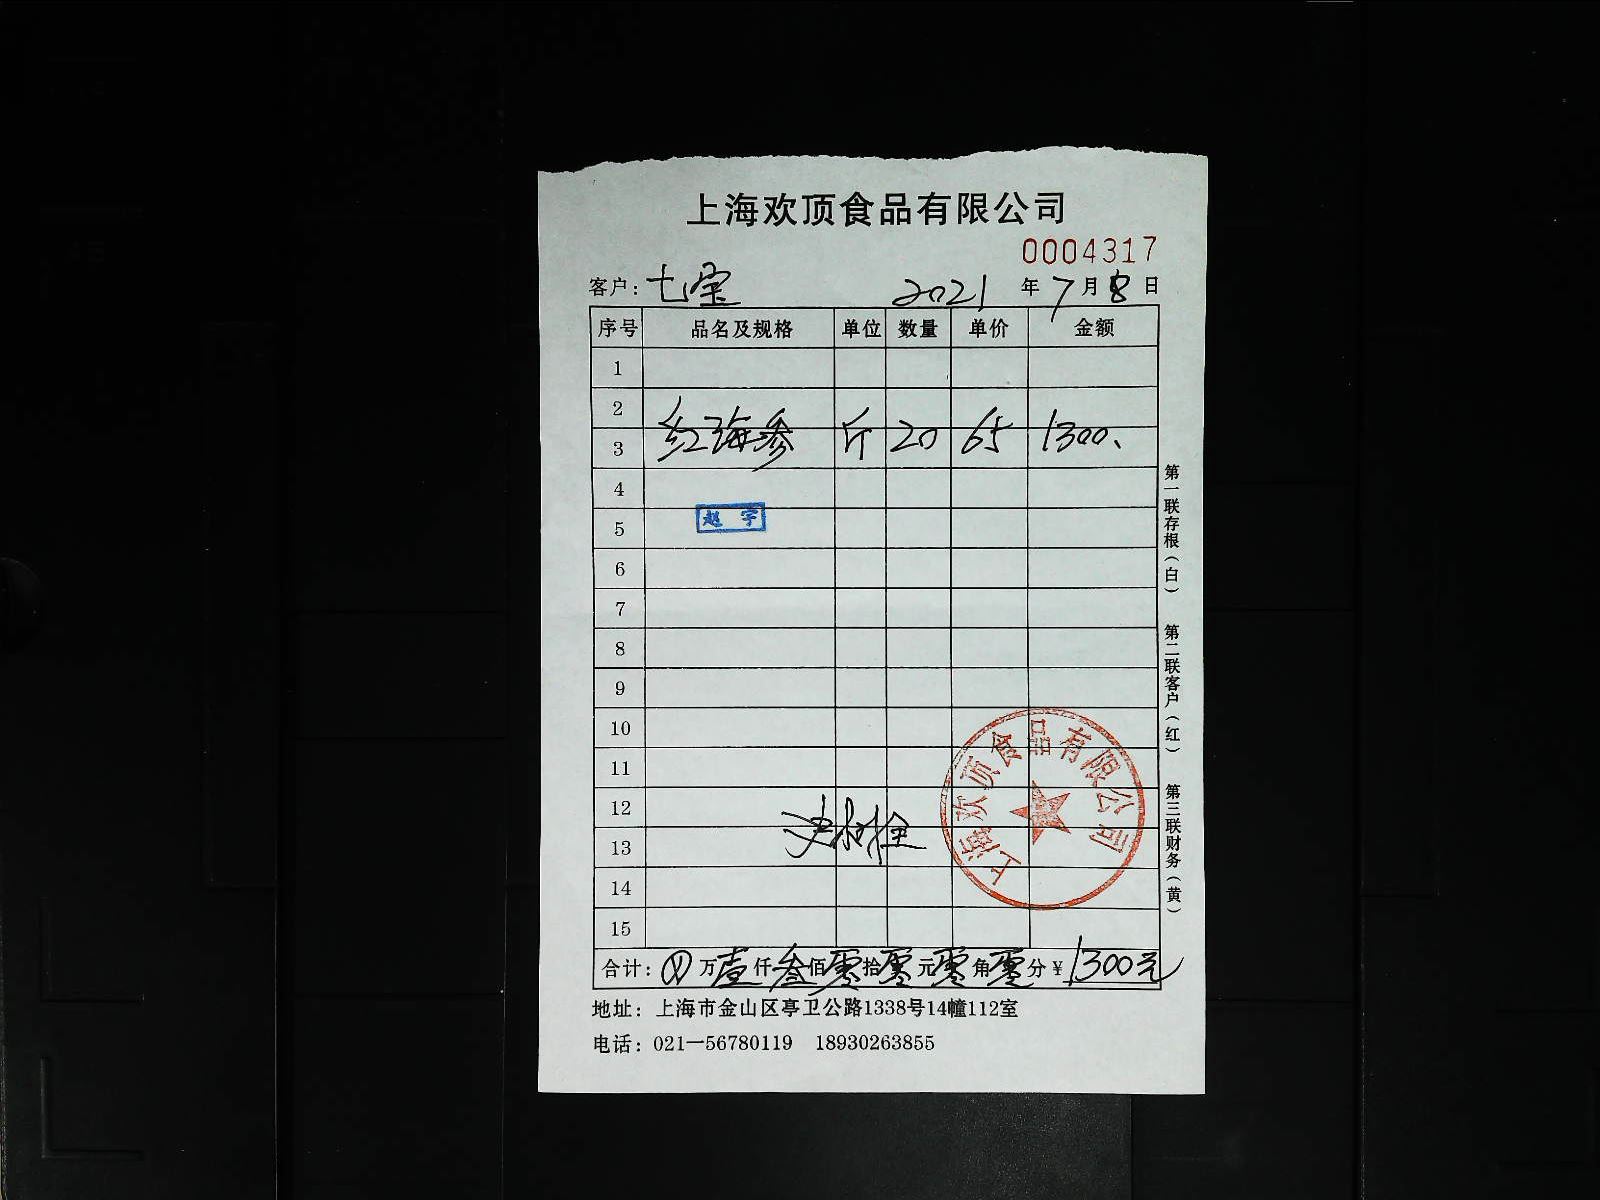 上海欢顶食品有限公司
0004317
客户：七宝 2021 年 7 月 8 日
序号 品名及规格 单位 数量 单价 金额
1
2
3 红海参 斤 20 65 1300.
4
5 赵宇
6
7
8
9
10
11
12
13
14
15
上海欢顶食品有限公司
合计：⊗ 万 壹 仟 叁 佰 零 拾 零 元 零 角 零 分 ¥ 1300元
地址：上海市金山区亭卫公路1338号14幢112室
电话：021—56780119 18930263855
第一联存根（白）
第二联客户（红）
第三联财务（黄）